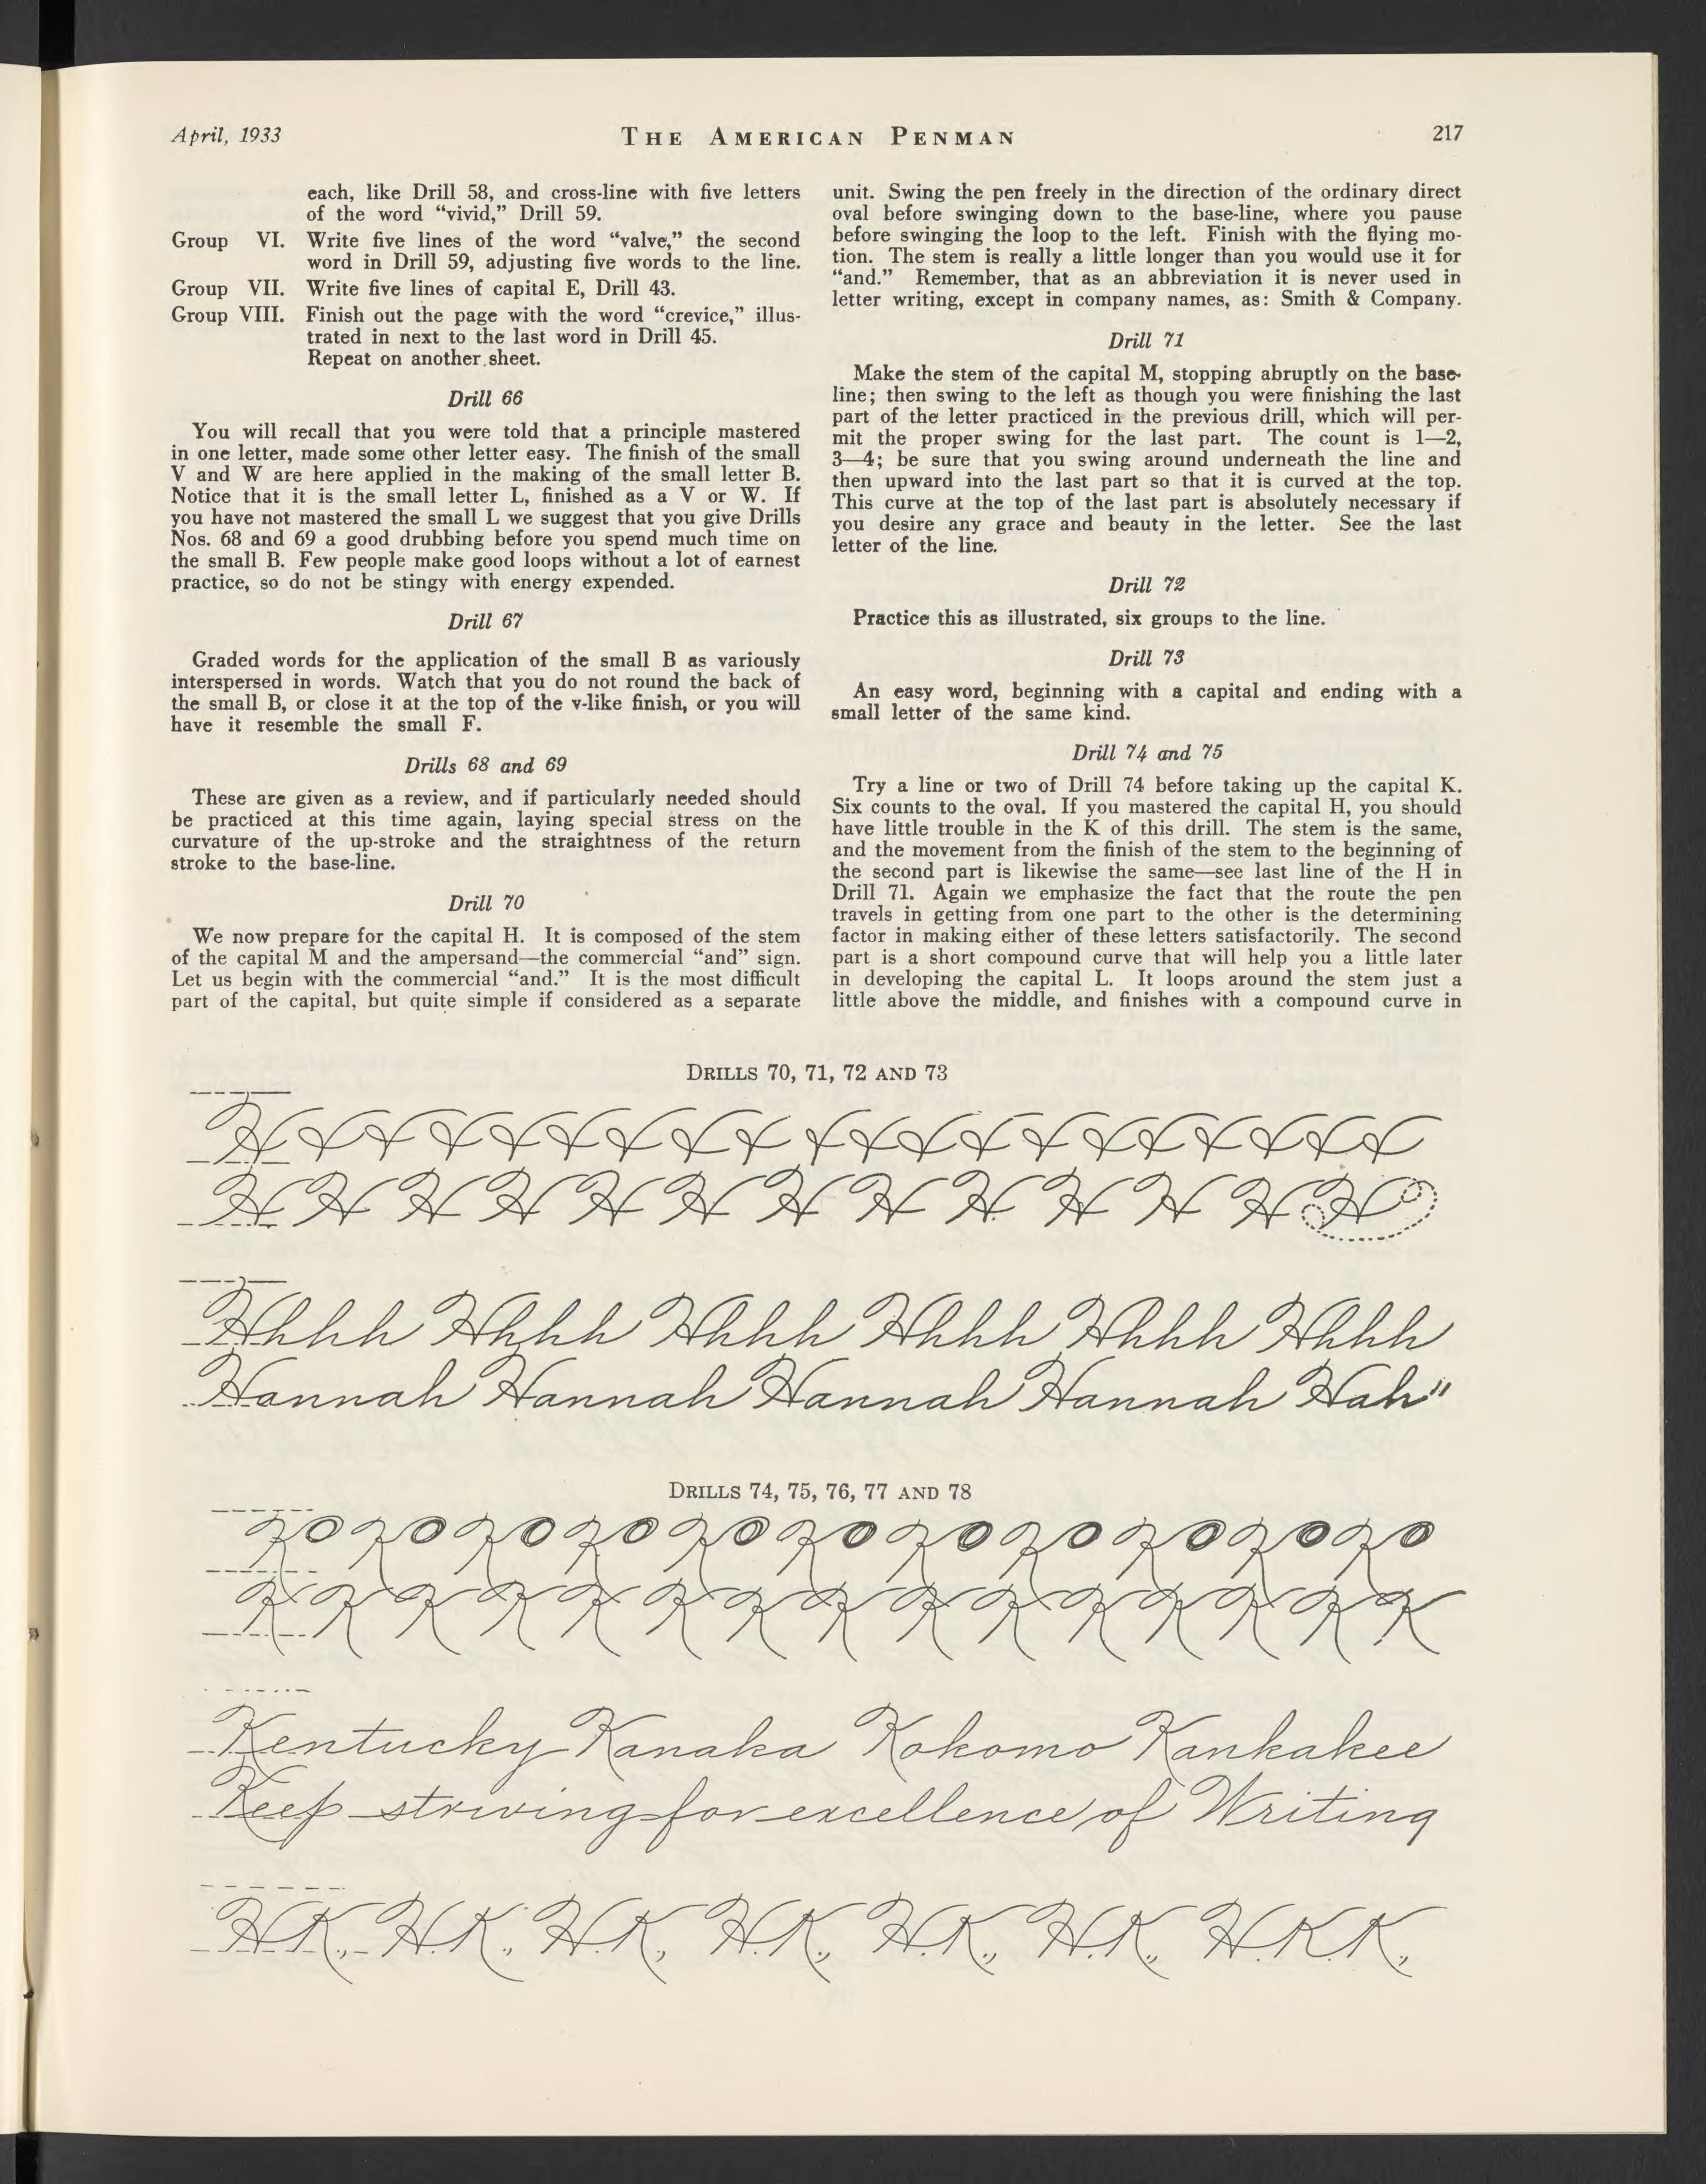 April, 1933
THE AMERICAN PENMAN
217
each, like Drill 58, and cross-line with five letters
of the word “vivid,” Drill 59.
Group VI. Write five lines of the word “valve,” the second
word in Drill 59, adjusting five words to the line.
Group VII. Write five lines of capital E, Drill 43.
Group VIII. Finish out the page with the word “crevice,” illus-
trated in next to the last word in Drill 45.
Repeat on another sheet.
Drill 66
You will recall that you were told that a principle mastered
in one letter, made some other letter easy. The finish of the small
V and W are here applied in the making of the small letter B.
Notice that it is the small letter L, finished as a V or W. If
you have not mastered the small L we suggest that you give Drills
Nos. 68 and 69 a good drubbing before you spend much time on
the small B. Few people make good loops without a lot of earnest
practice, so do not be stingy with energy expended.
Drill 67
Graded words for the application of the small B as variously
interspersed in words. Watch that you do not round the back of
the small B, or close it at the top of the v-like finish, or you will
have it resemble the small F.
Drills 68 and 69
These are given as a review, and if particularly needed should
be practiced at this time again, laying special stress on the
curvature of the up-stroke and the straightness of the return
stroke to the base-line.
Drill 70
We now prepare for the capital H. It is composed of the stem
of the capital M and the ampersand—the commercial “and” sign.
Let us begin with the commercial “and.” It is the most difficult
part of the capital, but quite simple if considered as a separate
unit. Swing the pen freely in the direction of the ordinary direct
oval before swinging down to the base-line, where you pause
before swinging the loop to the left. Finish with the flying mo-
tion. The stem is really a little longer than you would use it for
“and.” Remember, that as an abbreviation it is never used in
letter writing, except in company names, as: Smith & Company.
Drill 71
Make the stem of the capital M, stopping abruptly on the base-
line; then swing to the left as though you were finishing the last
part of the letter practiced in the previous drill, which will per-
mit the proper swing for the last part. The count is 1—2,
3—4; be sure that you swing around underneath the line and
then upward into the last part so that it is curved at the top.
This curve at the top of the last part is absolutely necessary if
you desire any grace and beauty in the letter. See the last
letter of the line.
Drill 72
Practice this as illustrated, six groups to the line.
Drill 73
An easy word, beginning with a capital and ending with a
small letter of the same kind.
Drill 74 and 75
Try a line or two of Drill 74 before taking up the capital K.
Six counts to the oval. If you mastered the capital H, you should
have little trouble in the K of this drill. The stem is the same,
and the movement from the finish of the stem to the beginning of
the second part is likewise the same—see last line of the H in
Drill 71. Again we emphasize the fact that the route the pen
travels in getting from one part to the other is the determining
factor in making either of these letters satisfactorily. The second
part is a short compound curve that will help you a little later
in developing the capital L. It loops around the stem just a
little above the middle, and finishes with a compound curve in
DRILLS 70, 71, 72 AND 73
H H H H H H H H H H H H H
Hhhh Hhhh Hhhh Hhhh Hhhh Hhhh
Hannah Hannah Hannah Hannah Hah"
DRILLS 74, 75, 76, 77 AND 78
K K K K K K K K K K K K K K K
Kentucky Kanaka Kokomo Kankakee
Keep striving for excellence of Writing
H.K., H.K., H.K., H.K., H.K., H.K., H.K.K.,